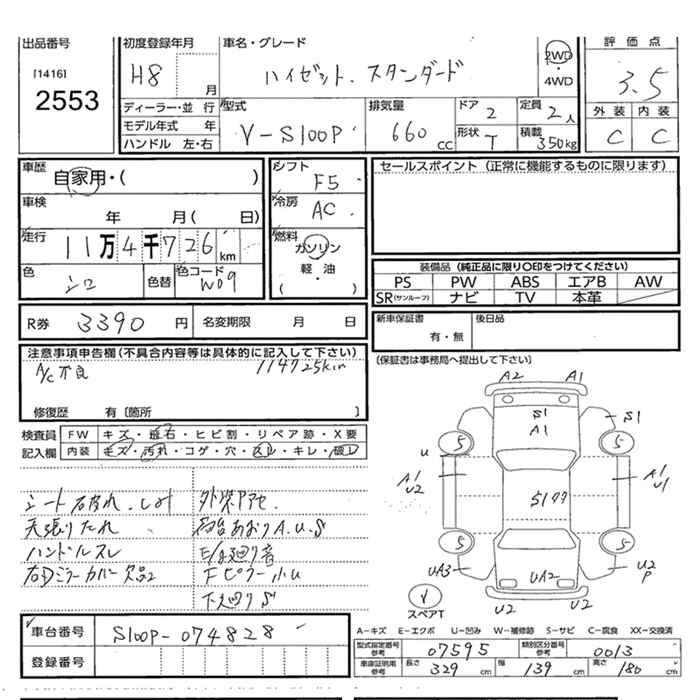 出品番号
[1416]
2553
初度登録年月
H8 月
車名・グレード
ハイゼット. スタンダード
2WD
・
4WD
評価点
3.5
外装 内装
C C
ディーラー・並 行
モデル年式 年
ハンドル 左・右
型式
V-S100P
排気量
660 cc
ドア 2
形状 T
定員 2人
積載 350kg
車歴
自家用・( )
車検
年 月( 日)
走行
11万4千726km
色 シロ
色替
色コード W09
シフト
F5
冷房
AC
燃料
ガソリン
・
軽・油
( )
セールスポイント (正常に機能するものに限ります)
装備品 (純正品に限り〇印をつけてください)
PS PW ABS エアB AW
SR(サンルーフ) ナビ TV 本革
R券 3390 円 名変期限 月 日
新車保証書 後日品
有・無
(保証書は事務局へ提出して下さい)
注意事項申告欄(不具合内容等は具体的に記入して下さい)
A/C不良 114725km
修復歴 有〔箇所 〕
検査員 FW キズ・飛石・ヒビ割・リペア跡・X要
記入欄 内装 キズ・汚れ・コゲ・穴・スレ・キレ・破レ
シート破れ.しみ 外装アセ.
天張りたれ 荷台あおりA.U.S
ハンドルスレ E/g廻り音
右Dミラーカバー欠品 Fピラー小U
下廻りS
車台番号 S100P-074828
登録番号
A2 A1
S1
A1
S1
5 5
U
A1
U2
S1アア
A1
U1
5 5
UA3
UA2
U2
P
U2 U2
スペアT
A-キズ E-エクボ U-凹み W-補修跡 S-サビ C-腐食 XX-交換済
型式指定番号 参考 07595 類別区分番号 参考 0013
車庫証明用 参考 長さ 329 cm 幅 139 cm 高さ 180 cm